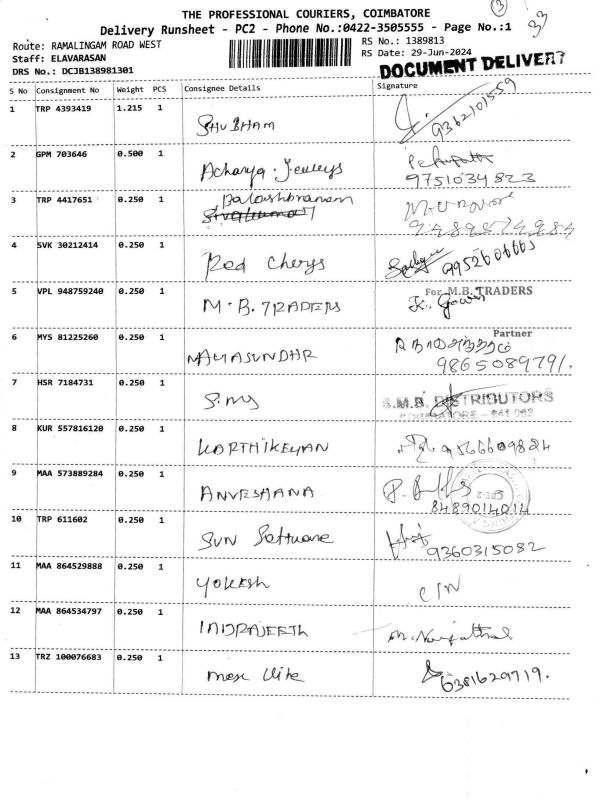 THE PROFESSIONAL COURIERS, COIMBATORE
Delivery Runsheet - PC2 - Phone No.:0422-3505555 - Page No.:1
3
33
Route: RAMALINGAM ROAD WEST
RS No.: 1389813
Staff: ELAVARASAN
RS Date: 29-Jun-2024
DRS No.: DCJB138981301
DOCUMENT DELIVERY
S No Consignment No Weight PCS Consignee Details Signature
1 TRP 4393419 1.215 1 SHUBHAM 9362101559
2 GPM 703646 0.500 1 Acharya Jewelys 9751034823
3 TRP 4417651 0.250 1
4 SVK 30212414 0.250 1 Red Cherys 9952606665
5 VPL 948759240 0.250 1 M.B. TRADERS For M.B. TRADERS
Partner
6 MYS 81225260 0.250 1 9865089791.
7 HSR 7184731 0.250 1 S.M.B. DISTRIBUTORS
8 KUR 557816120 0.250 1 KARTHIKEYAN
9 MAA 573889284 0.250 1 ANVESHANA 8489014014
10 TRP 611602 0.250 1 SUN Software 9360315082
11 MAA 864529888 0.250 1 Yokesh
12 MAA 864534797 0.250 1 INDRAJEETH
13 TRZ 100076683 0.250 1 6381629719.